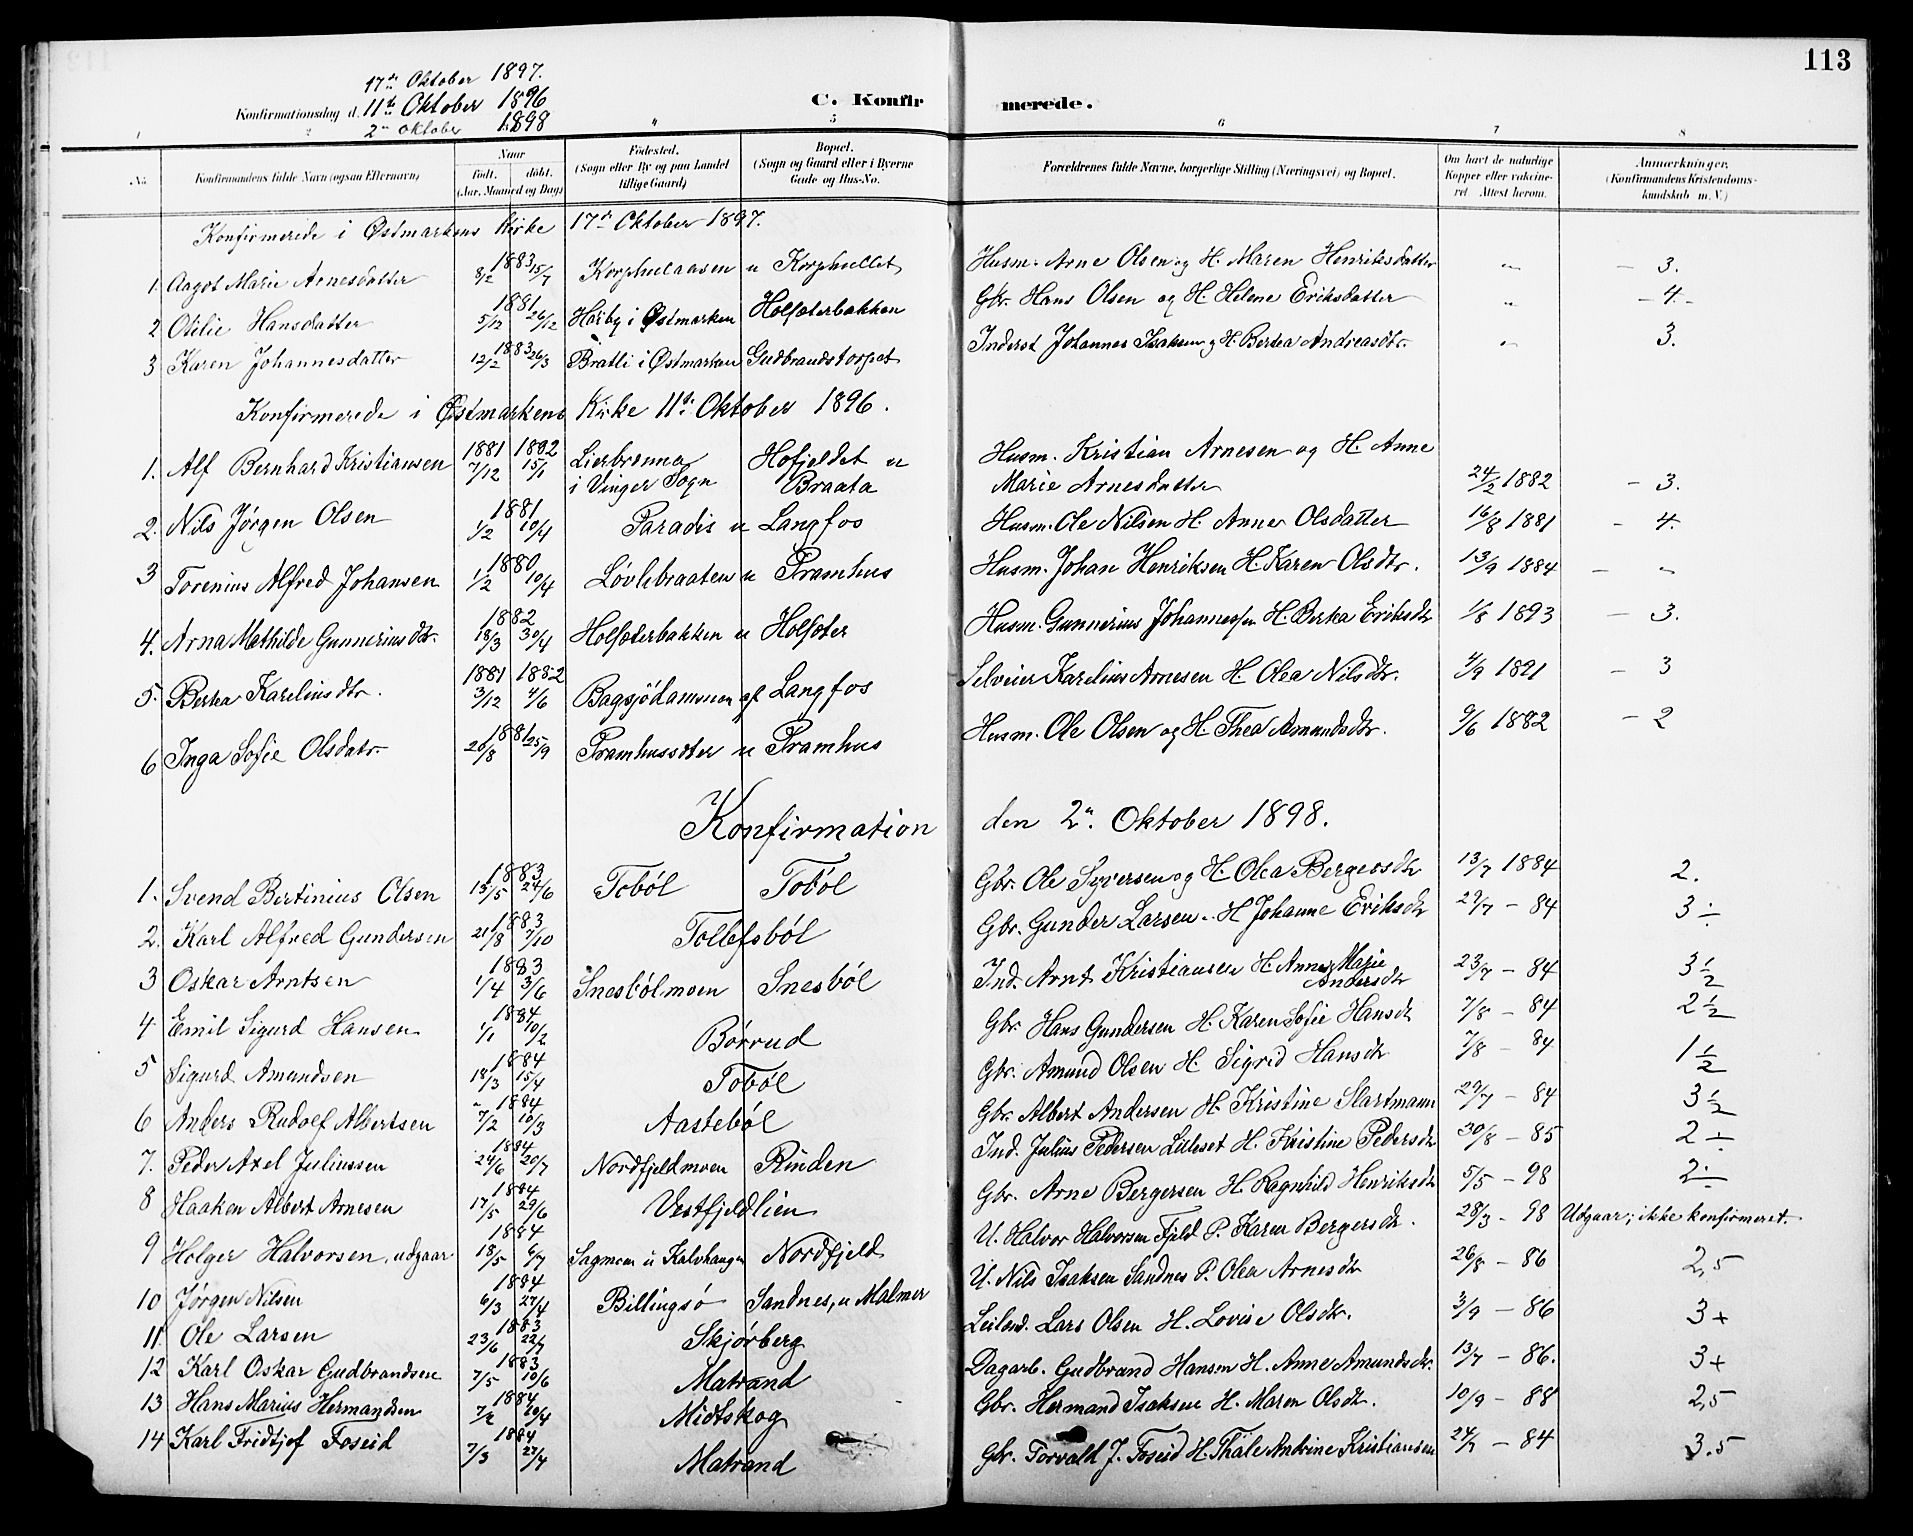 113
17de Oktober 1897.
Konfirmationsdag d. 11te Oktober 1896
2den Oktober 1898
C. Konfirmerede.
1 2 4 5 6 7 8
No. Konfirmandens fulde Navn (ogsaa Efternavn) Naar født. døbt. (Aar, Maaned og Dag) Fødested. (Sogn eller By og paa Landet tillige Gaard) Bopæl. (Sogn og Gaard eller i Byerne Gade og Hus-No. Forældrenes fulde Navne, borgerlige Stilling (Næringsvei) og Bopæl. Om havt de naturlige Kopper eller vakcineret Attest herom. Anmærkninger. (Konfirmandens Kristendomskundskab m. V.)
Konfirmerede i Østmarkens Kirke 17de Oktober 1897.
1. Aagot Marie Arnesdatter 1883 8/2 15/7 Korphulaasen u Korphullet Husm. Arne Olsen og H. Maren Henriksdatter " - 3.
2 Otilie Hansdatter 1881 5/12 26/12 Høiby i Østmarken Holsæterbakken Gbr. Hans Olsen og H. Helene Eriksdatter " - 4 -
3 Karen Johannesdatter 1883 12/2 26/3 Bratli i Østmarken Gudbrandstorpet Inderst Johannes Isaksen og H. Berthea Andreasdtr. " 3.
Konfirmerede i Østmarkens Kirke 11te Oktober 1896.
1. Alf Bernhard Kristiansen 1881 7/12 1882 15/1 Lierbrenna i Vinger Sogn Hofjeldet u Braata Husm. Kristian Arnesen og H. Anne Marie Arnesdatter 24/2 1882 - 3.
2. Nils Jørgen Olsen 1881 1/2 10/4 Paradis u Langfos Husm. Ole Nilsen H. Anne Olsdatter 16/8 1881 - 4.
3 Torenius Alfred Johansen 1880 1/2 10/4 Løvlibraaten u Pramhus Husm. Johan Henriksen H. Karen Olsdtr. 13/9 1884 - "
4. Arna Mathilde Gunneriusdtr. 1882 18/3 30/4 Holsæterbakken u Holsæter Husm. Gunnerius Johannessen H. Berthea Eriksdtr 1/8 1893 - 3.
5. Berthea Kareliusdtr. 1881 3/12 1882 4/6 Bagsjödammen af Langfos Selveier Karelius Arnesen H. Olea Nilsdtr. 4/9 1891 - 3
6 Inga Sofie Olsdatr. 1881 26/8 25/9 Pramhussæter u Pramhus Husm. Ole Olsen og H. Thea Amundsdtr. 9/6 1882 - 2
Konfirmation den 2den Oktober 1898.
1. Svend Bertinius Olsen 1883 15/5 24/6 Toböl Toböl Gbr. Ole Syversen og H. Olea Bergersdtr 13/7 1884 2.
2. Karl Alfred Gundersen 1883 21/8 7/10 Tollefsböl Gbr. Gunder Larsen. H Johanne Eriksdtr 29/7 - 84 3 ÷
3 Oskar Arntsen 1883 1/4 3/6 Snesbölmoen Snesböl Ind. Arnt Kristiansen H. Anne Marie Andersdtr 23/7 - 84 3 1/2
4 Emil Sigurd Hansen 1884 1/1 10/2 Börrud Gbr. Hans Gundersen H. Karen Sofie Hansdtr 7/8 - 84 2 1/2
5 Sigurd Amundsen 1884 18/3 15/4 Toböl Gbr. Amund Olsen H. Sigrid Hansdtr 7/8 - 84 1 1/2
6 Anders Rudolf Albertsen 1884 7/2 10/3 Aasteböl Gbr. Albert Andersen H. Kristine Slartmann 29/7 - 84 3 1/2
7. Peder Axel Juliussen 1884 24/6 20/7 Nordfjeldmoen Rinden Ind. Julius Pedersen Lilleset H. Kristine Pedersdtr 30/8 - 85 2 ÷
8 Haaken Albert Arnesen 1884 17/5 29/6 Vestfjeldlien Gbr. Arne Bergersen H. Ragnhild Henriksdtr 5/5 - 98 2 ÷
9 Holger Halvorsen, udgaar 1884 18/5 6/7 Sagmoen u Kalvhaugen Nordfjeld U. Halvor Halvorsen Fjeld P. Karen Bergersdtr. 28/3 - 98 Udgaar; ikke konfirmeret.
10 Jørgen Nilsen 1884 6/3 27/4 Billingsö Sandnes, u Malmer U. Nils Isaksen Sandnes P. Olea Arnesdtr 26/8 - 86 2,5
11. Ole Larsen 1883 23/6 22/7 Skjörberg Leilend. Lars Olsen H. Lovise Olsdtr. 3/9 - 86 3 +
12 Karl Oskar Gudbrandsen 1883 7/5 10/6 Matrand Dagarb. Gudbrand Hansen H. Anne Amundsdtr. 13/7 - 86. 3 +
13 Hans Marius Hermandsen 1884 7/2 10/4 Midtskog Gbr. Hermand Isaksen H. Maren Olsdtr. 10/9 - 88 2,5
14 Karl Fridtjof Foseid 1884 7/3 27/4 Matrand Gbr. Torvald J. Foseid H. Thale Andrine Kristiansen 24/7 - 84 3.5